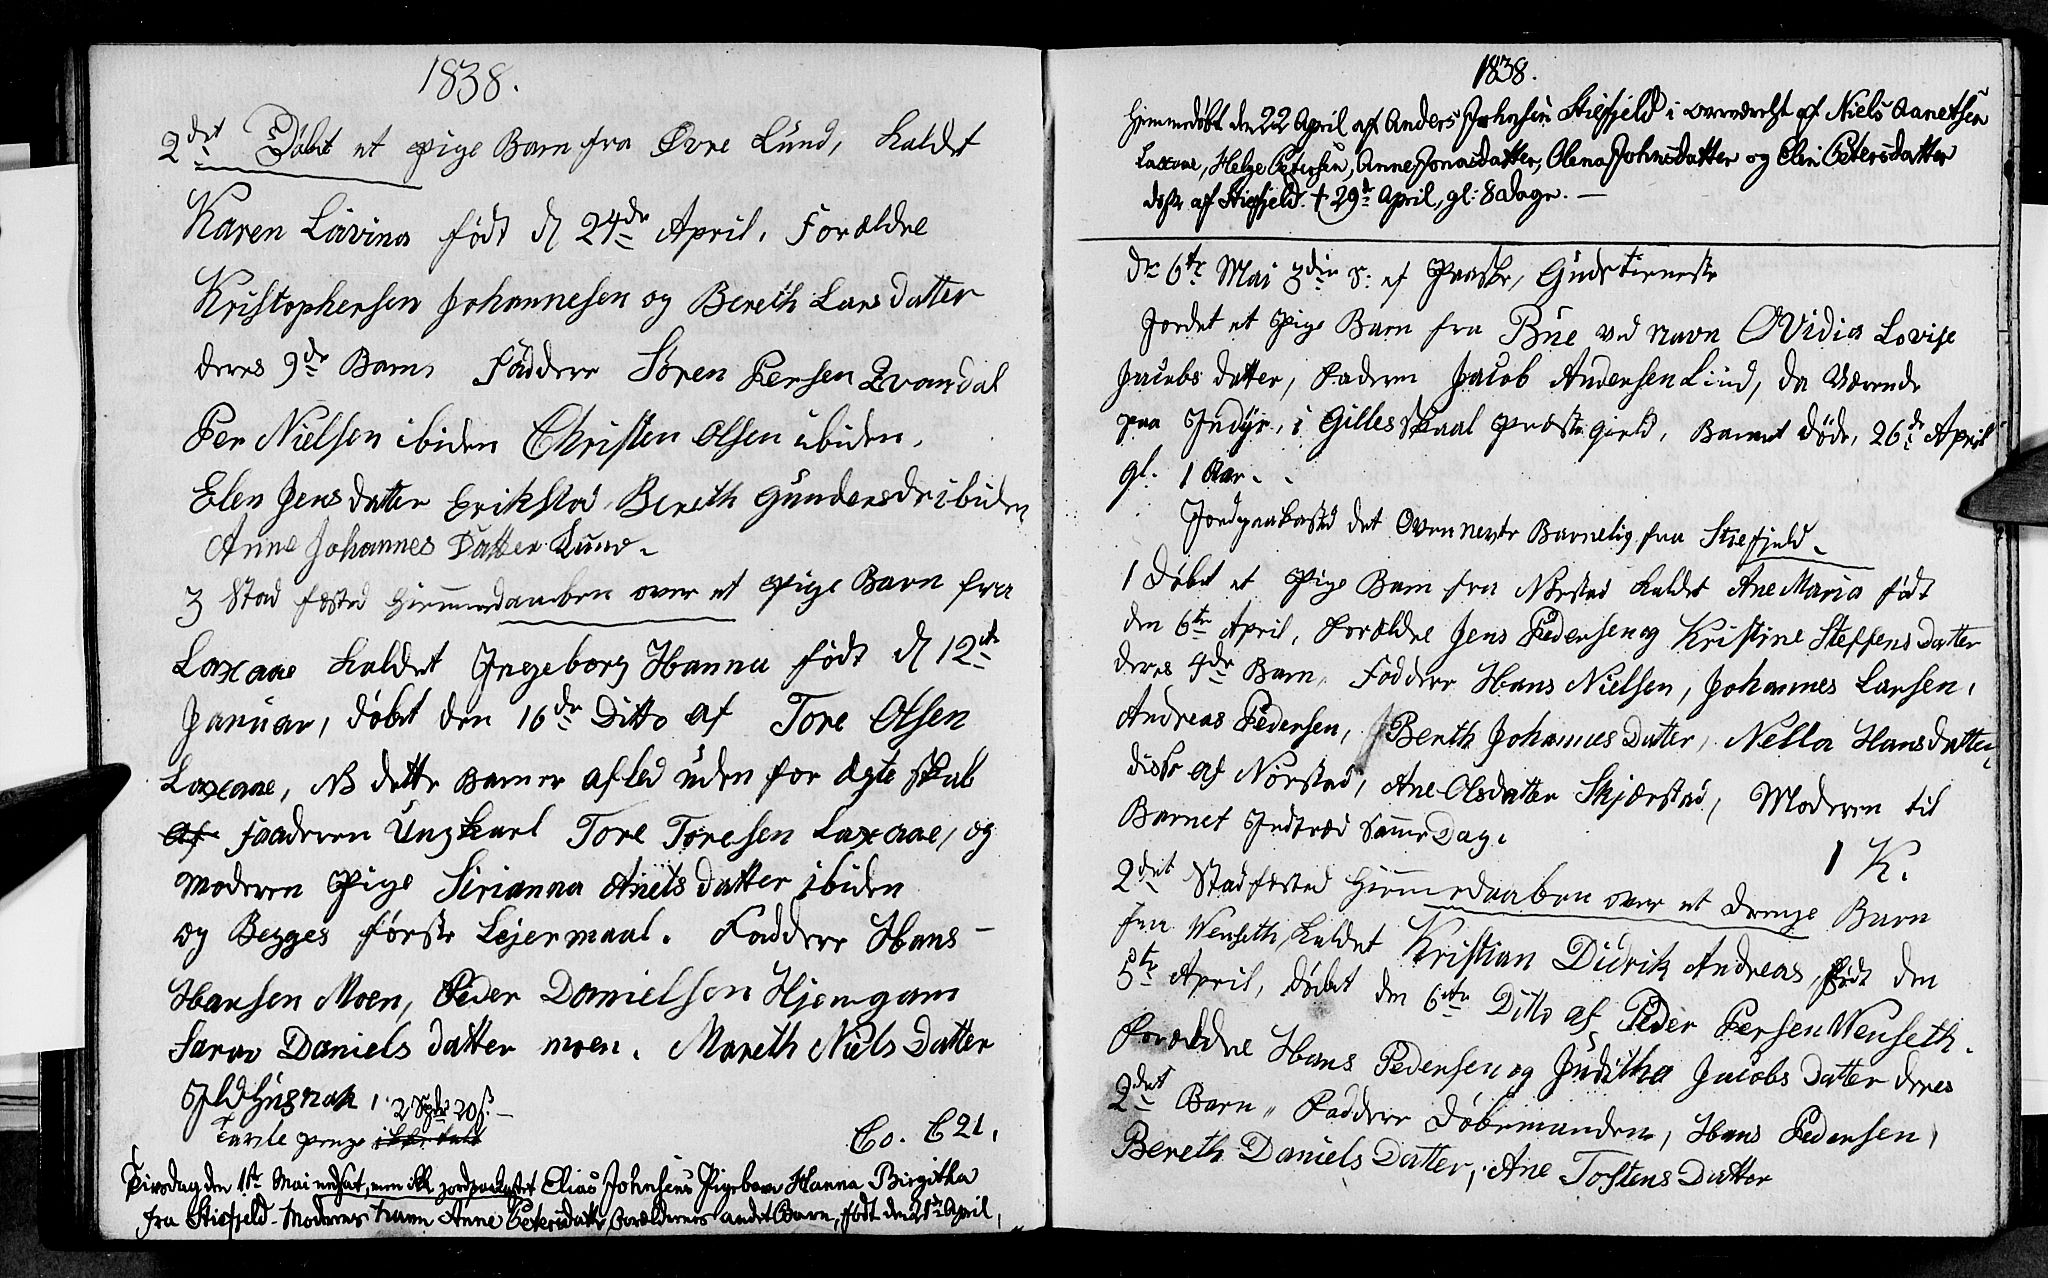 1838.
2det Døbt et Pige Barn fra Øvre Lund, kaldet
Karen Lavina født d 24de April. Forældre
Kristophersen Johannesen og Bereth Larsdatter
deres 9de Barn, Faddere Sören Persen Evandal
Per Nielsen ibiden Christen Olsen ibiden,
Elen Jensdatter Erikstad Bereth Gundersdr ibiden
Anne Johannes Datter Lund.
3 Stad fæsted Hiemmedaaben over et Pige Barn fra
Laxaae kaldet Ingeborg Hanna født d 12te
Januar, døbt den 16de Ditto af Tore Olsen
Laxaae, NB dette Barn er afled uden for Ægteskab
af Faaderen Ungkarl Tore Toresen Laxaae, og
Moderen Pige Sirianna Anets datter ibiden
og Begges første Lejermaal. Faddere Hans
Hansen Moen, Peder Danielsen Hjemgam
Sara Daniels datter moen. Mareth Niels Datter
Ildhusnak, 2 Spdr 20 s. –
Tavle penge ikke talt
Co. C21.
Tirsdag den 1ste Mai nedsat, men ikke jordpaakastet Elias Johnsens Pigebarn Hanna Birgitha
fra Stiefjeld. Moderens navn Anne Petersdatter, Forældrenes andet Barn, født den 21de April,
1838.
Hjemmedøbt den 22 April af Anders Johnsen Stiefjeld i overværelse af Niels Aanethsen
Laxaae, Helge Petersen, Anne Jonasdatter, Olena Johnsdatter og Elen Petersdatter
disse af Stiefjeld. † 29de April, gl: 8 Dage. —
Dn 6te Mai 3die S. ef Paaske, Gudstieneste
Jordet et Pige Barn fra Bue ved navn Ovidia Lovise
Jacobs datter, Faderen Jacob Andersen Lind, da Værende
paa Indyr, i Gillesskaal Præstegield, Barnet døde, 26de April
gl. 1 Aar.
Jordpaakasted det Ovennevnte Barnelig fra Stiefjeld.
1 Døbt et Pige Barn fra Nörstad kaldet Ane Maria født
den 6te April, Forældre Jens Pedersen og Kristine Steffens Datter
deres 4de Barn, Faddere Hans Nielsen, Johannes Larsen,
Andreas Pedersen, Berth Johannes Datter, Nella Hansdatter,
disse af Nörstad, Ane Olsdatter Skjærstad, Moderen til
Barnet Indtræd samme Dag.
1 K.
2det Stadfæsted Hiemmedaaben over et Drenge Barn
fra Wenseth, kaldet Kristian Didrik Andreas, født den
5te April, døbt den 6te Ditto af Peder Persen Wenseth.
Forældre Hans Pedersen og Juditha Jacobs Datter deres
2det Barn, Faddere Döbermanden, Hans Pedersen,
Bereth Daniels Datter, Ane Tostens Datter